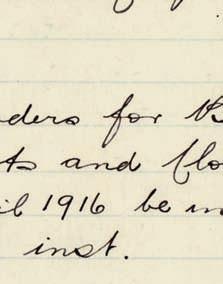 ders for
ts and Clo
il 1916 be
inst.